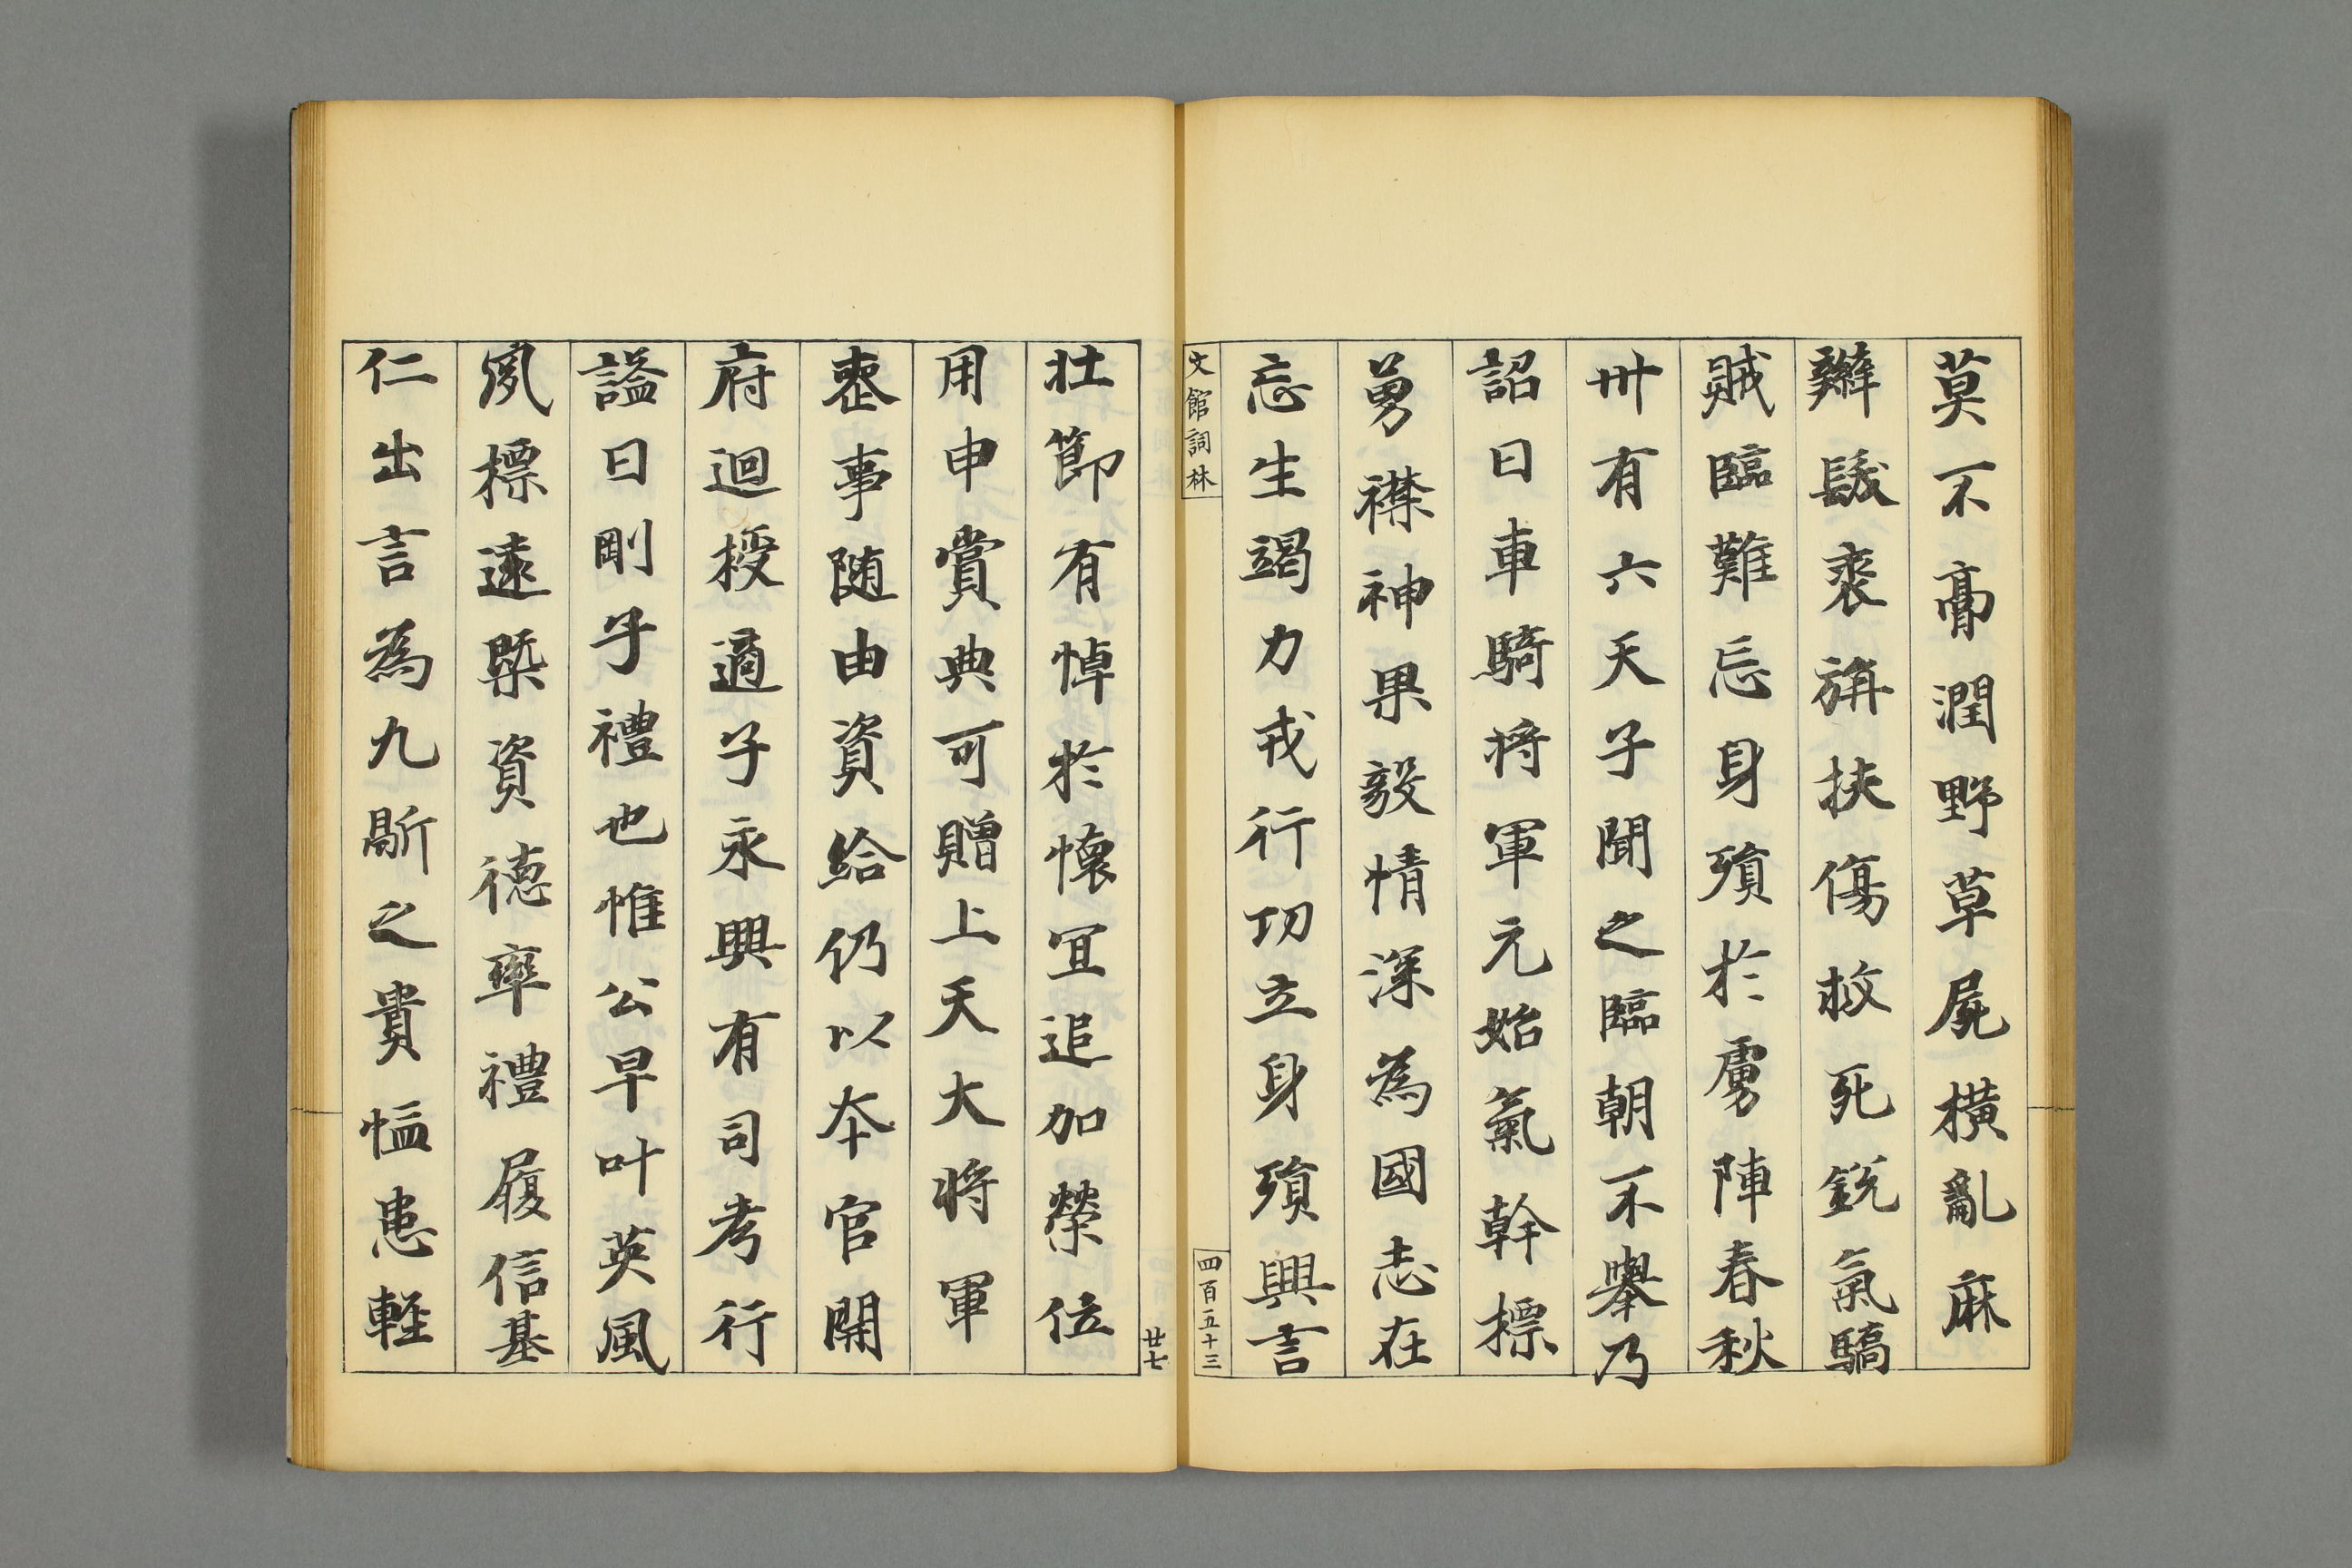 莫不膏潤野草屍横亂麻
辮髮裘旃扶傷救死鋭氣驕
賊臨難忘身殞於虜陣春秋
卅有六天子聞之臨朝不舉乃
詔曰車騎将軍元始氣幹標
勇襟神果毅情深為國志在
忘生竭力戎行功立身殞興言
文館詞林
四百五十三
廿七
壮節有悼於懷宜追加榮位
用申賞典可贈上天大将軍
喪事随由資給仍以本官開
府迴授適子永興有司考行
謚曰剛子禮也惟公早叶英風
夙標遠槩資徳率禮履信基
仁出言為九斸之貴恤患軽